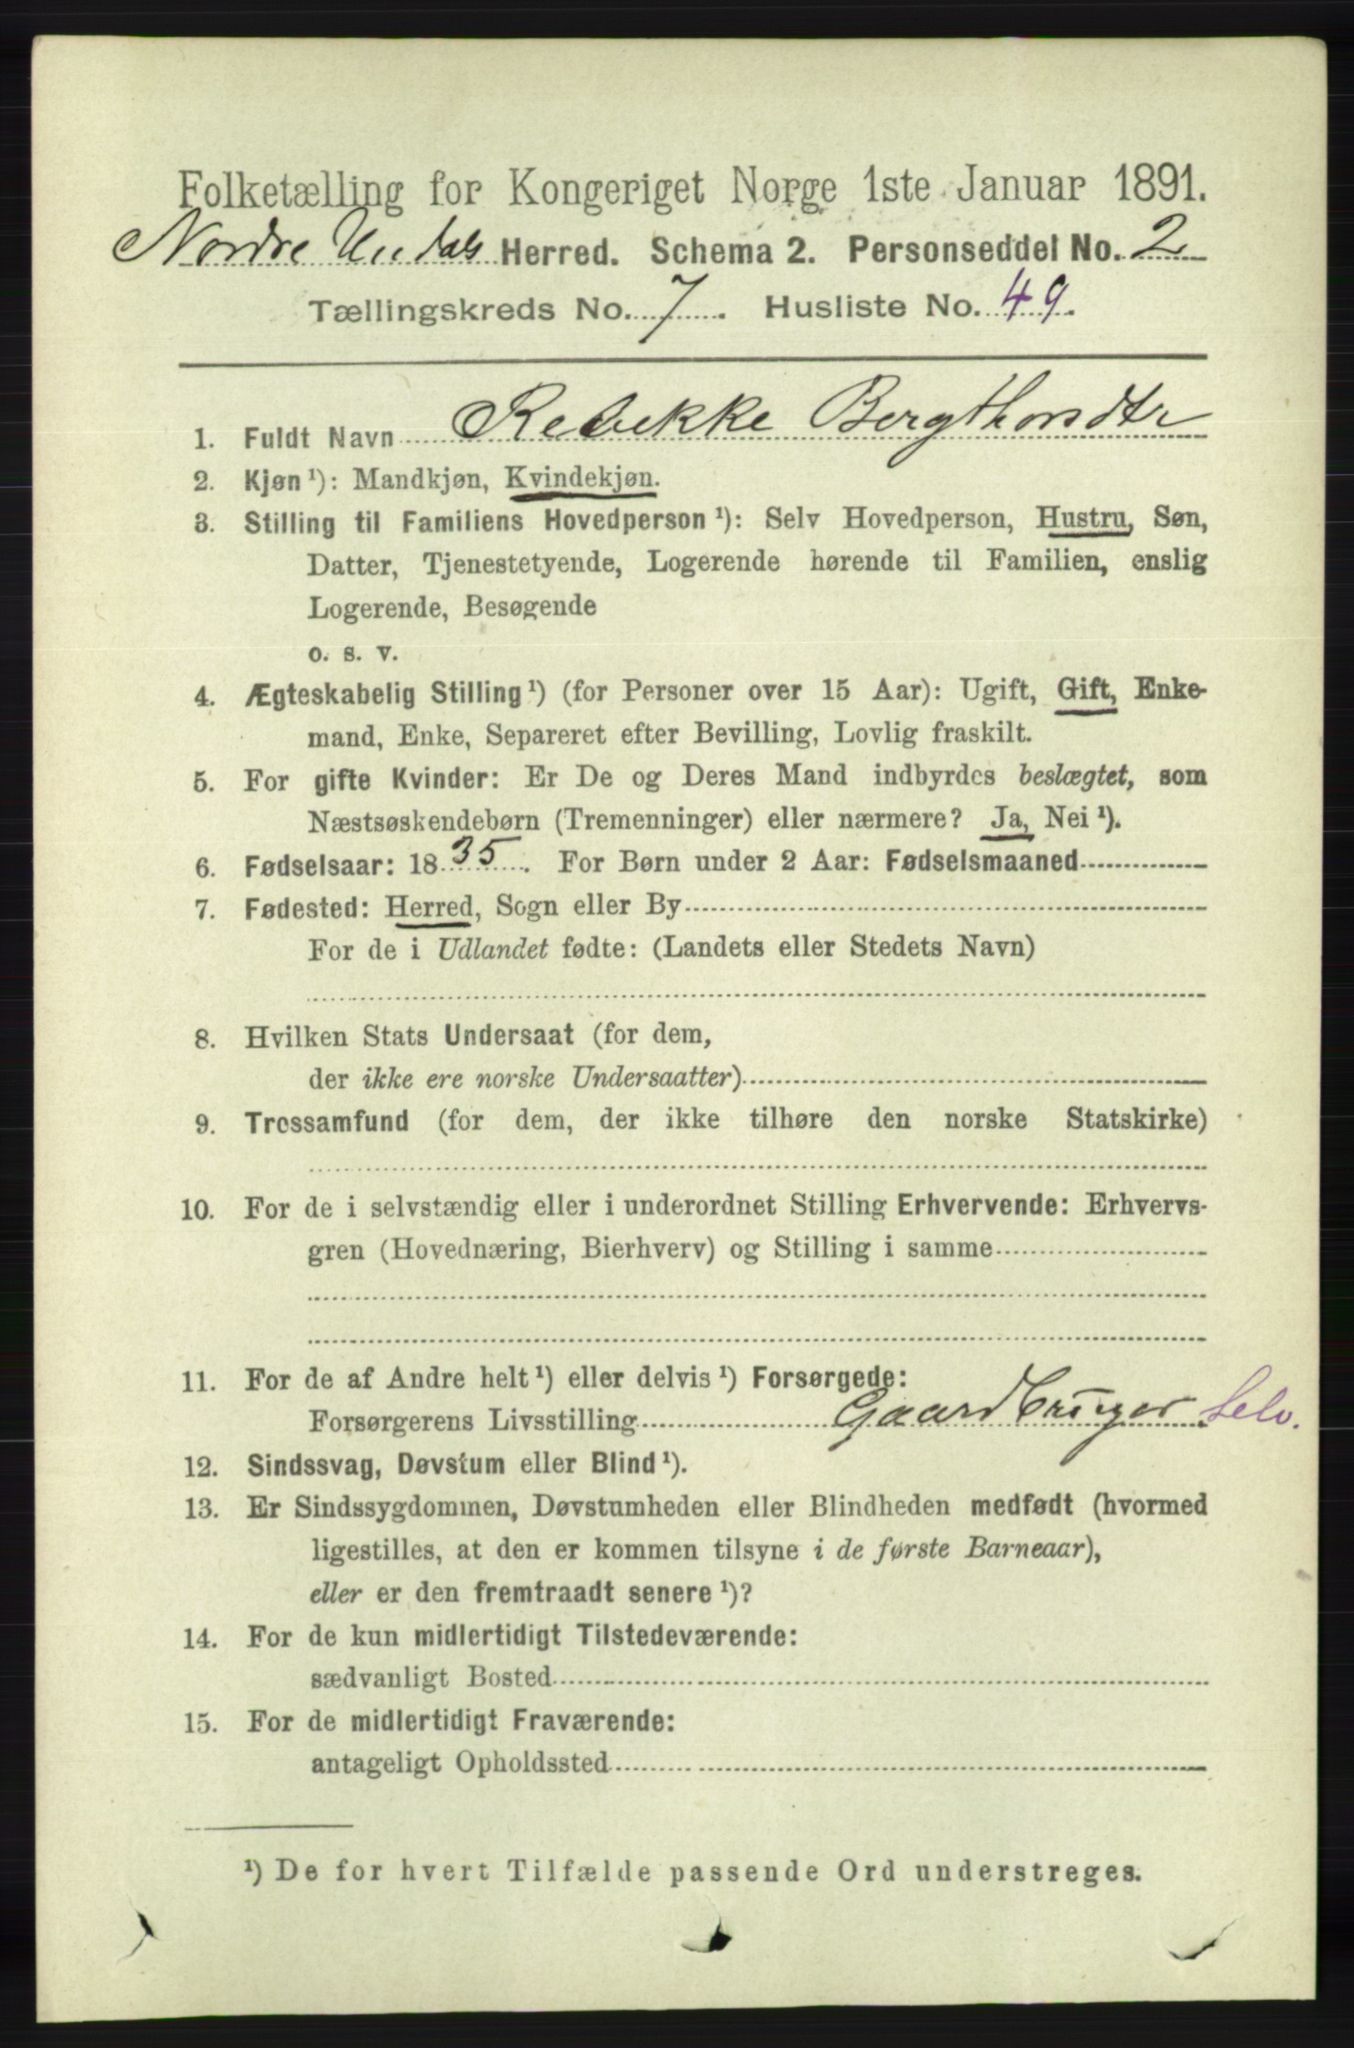 Folketælling for Kongeriget Norge 1ste Januar 1891.
Nordre Undals Herred. Schema 2. Personseddel No. 2
Tællingskreds No. 7. Husliste No. 49.
1. Fuldt Navn Rebekke Bergthorsdtr
2. Kjøn ¹): Mandkjøn, Kvindekjøn.
3. Stilling til Familiens Hovedperson ¹): Selv Hovedperson, Hustru, Søn,
Datter, Tjenestetyende, Logerende hørende til Familien, enslig
Logerende, Besøgende
o. s. v.
4. Ægteskabelig Stilling ¹) (for Personer over 15 Aar): Ugift, Gift, Enke-
mand, Enke, Separeret efter Bevilling, Lovlig fraskilt.
5. For gifte Kvinder: Er De og Deres Mand indbyrdes beslægtet, som
Næstsøskendebørn (Tremenninger) eller nærmere? Ja, Nei ¹).
6. Fødselsaar: 1835. For Børn under 2 Aar: Fødselsmaaned
7. Fødested: Herred, Sogn eller By
For de i Udlandet fødte: (Landets eller Stedets Navn)
8. Hvilken Stats Undersaat (for dem,
der ikke ere norske Undersaatter)
9. Trossamfund (for dem, der ikke tilhøre den norske Statskirke)
10. For de i selvstændig eller i underordnet Stilling Erhvervende: Erhvervs-
gren (Hovednæring, Bierhverv) og Stilling i samme
11. For de af Andre helt ¹) eller delvis ¹) Forsørgede:
Forsørgerens Livsstilling Gaardbruger Selv.
12. Sindssvag, Døvstum eller Blind ¹).
13. Er Sindssygdommen, Døvstumheden eller Blindheden medfødt (hvormed
ligestilles, at den er kommen tilsyne i de første Barneaar),
eller er den fremtraadt senere ¹)?
14. For de kun midlertidigt Tilstedeværende:
sædvanligt Bosted
15. For de midlertidigt Fraværende:
antageligt Opholdssted
¹) De for hvert Tilfælde passende Ord understreges.